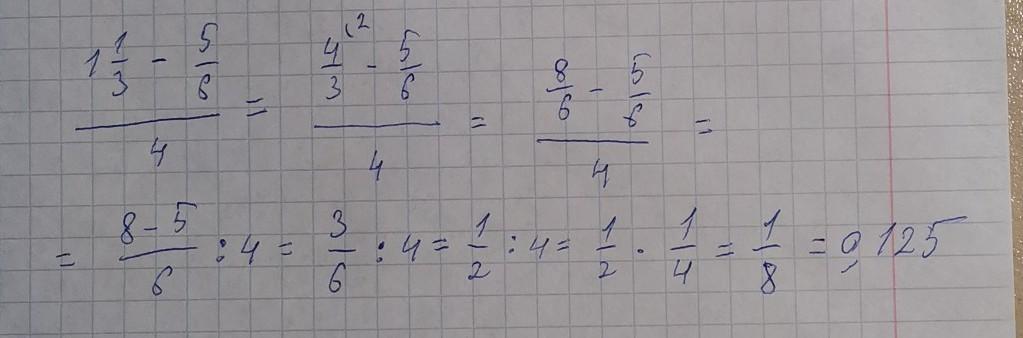 (1 1/3 - 5/6)/4 = (4/3⁽² - 5/6)/4 = (8/6 - 5/6)/4 =
= (8-5)/6 : 4 = 3/6 : 4 = 1/2 : 4 = 1/2 · 1/4 = 1/8 = 0,125